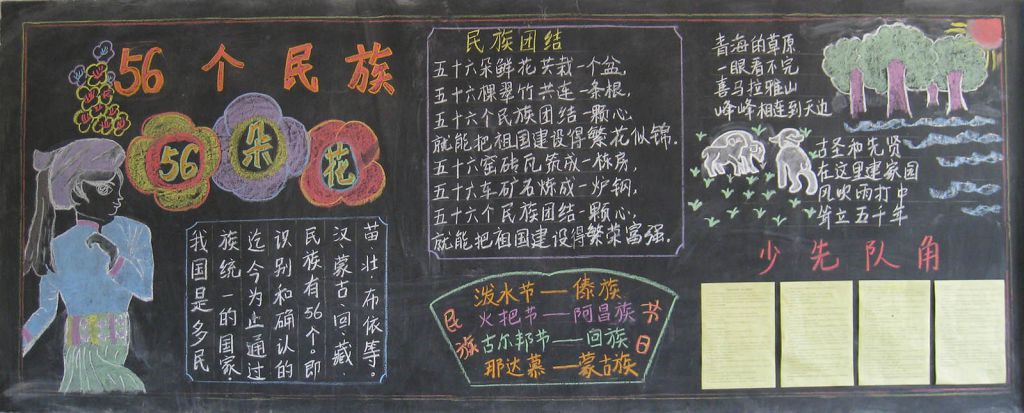 56个民族
56朵花
我国是多民
族统一的国家.
迄今为止通过
识别和确认的
民族有56个。即
汉.蒙古.回.藏.
苗.壮.布依等。
民族团结
五十六朵鲜花共栽一个盆,
五十六棵翠竹共连一条根,
五十六个民族团结一颗心,
就能把祖国建设得繁花似锦.
五十六窑砖瓦筑成一栋房,
五十六车矿石炼成一炉钢,
五十六个民族团结一颗心,
就能把祖国建设得繁荣富强.
民族节日
泼水节—傣族
火把节—阿昌族
古尔邦节—回族
那达慕—蒙古族
青海的草原
一眼看不完
喜马拉雅山
峰峰相连到天边
古圣和先贤
在这里建家园
风吹雨打中
耸立五十年
少先队角